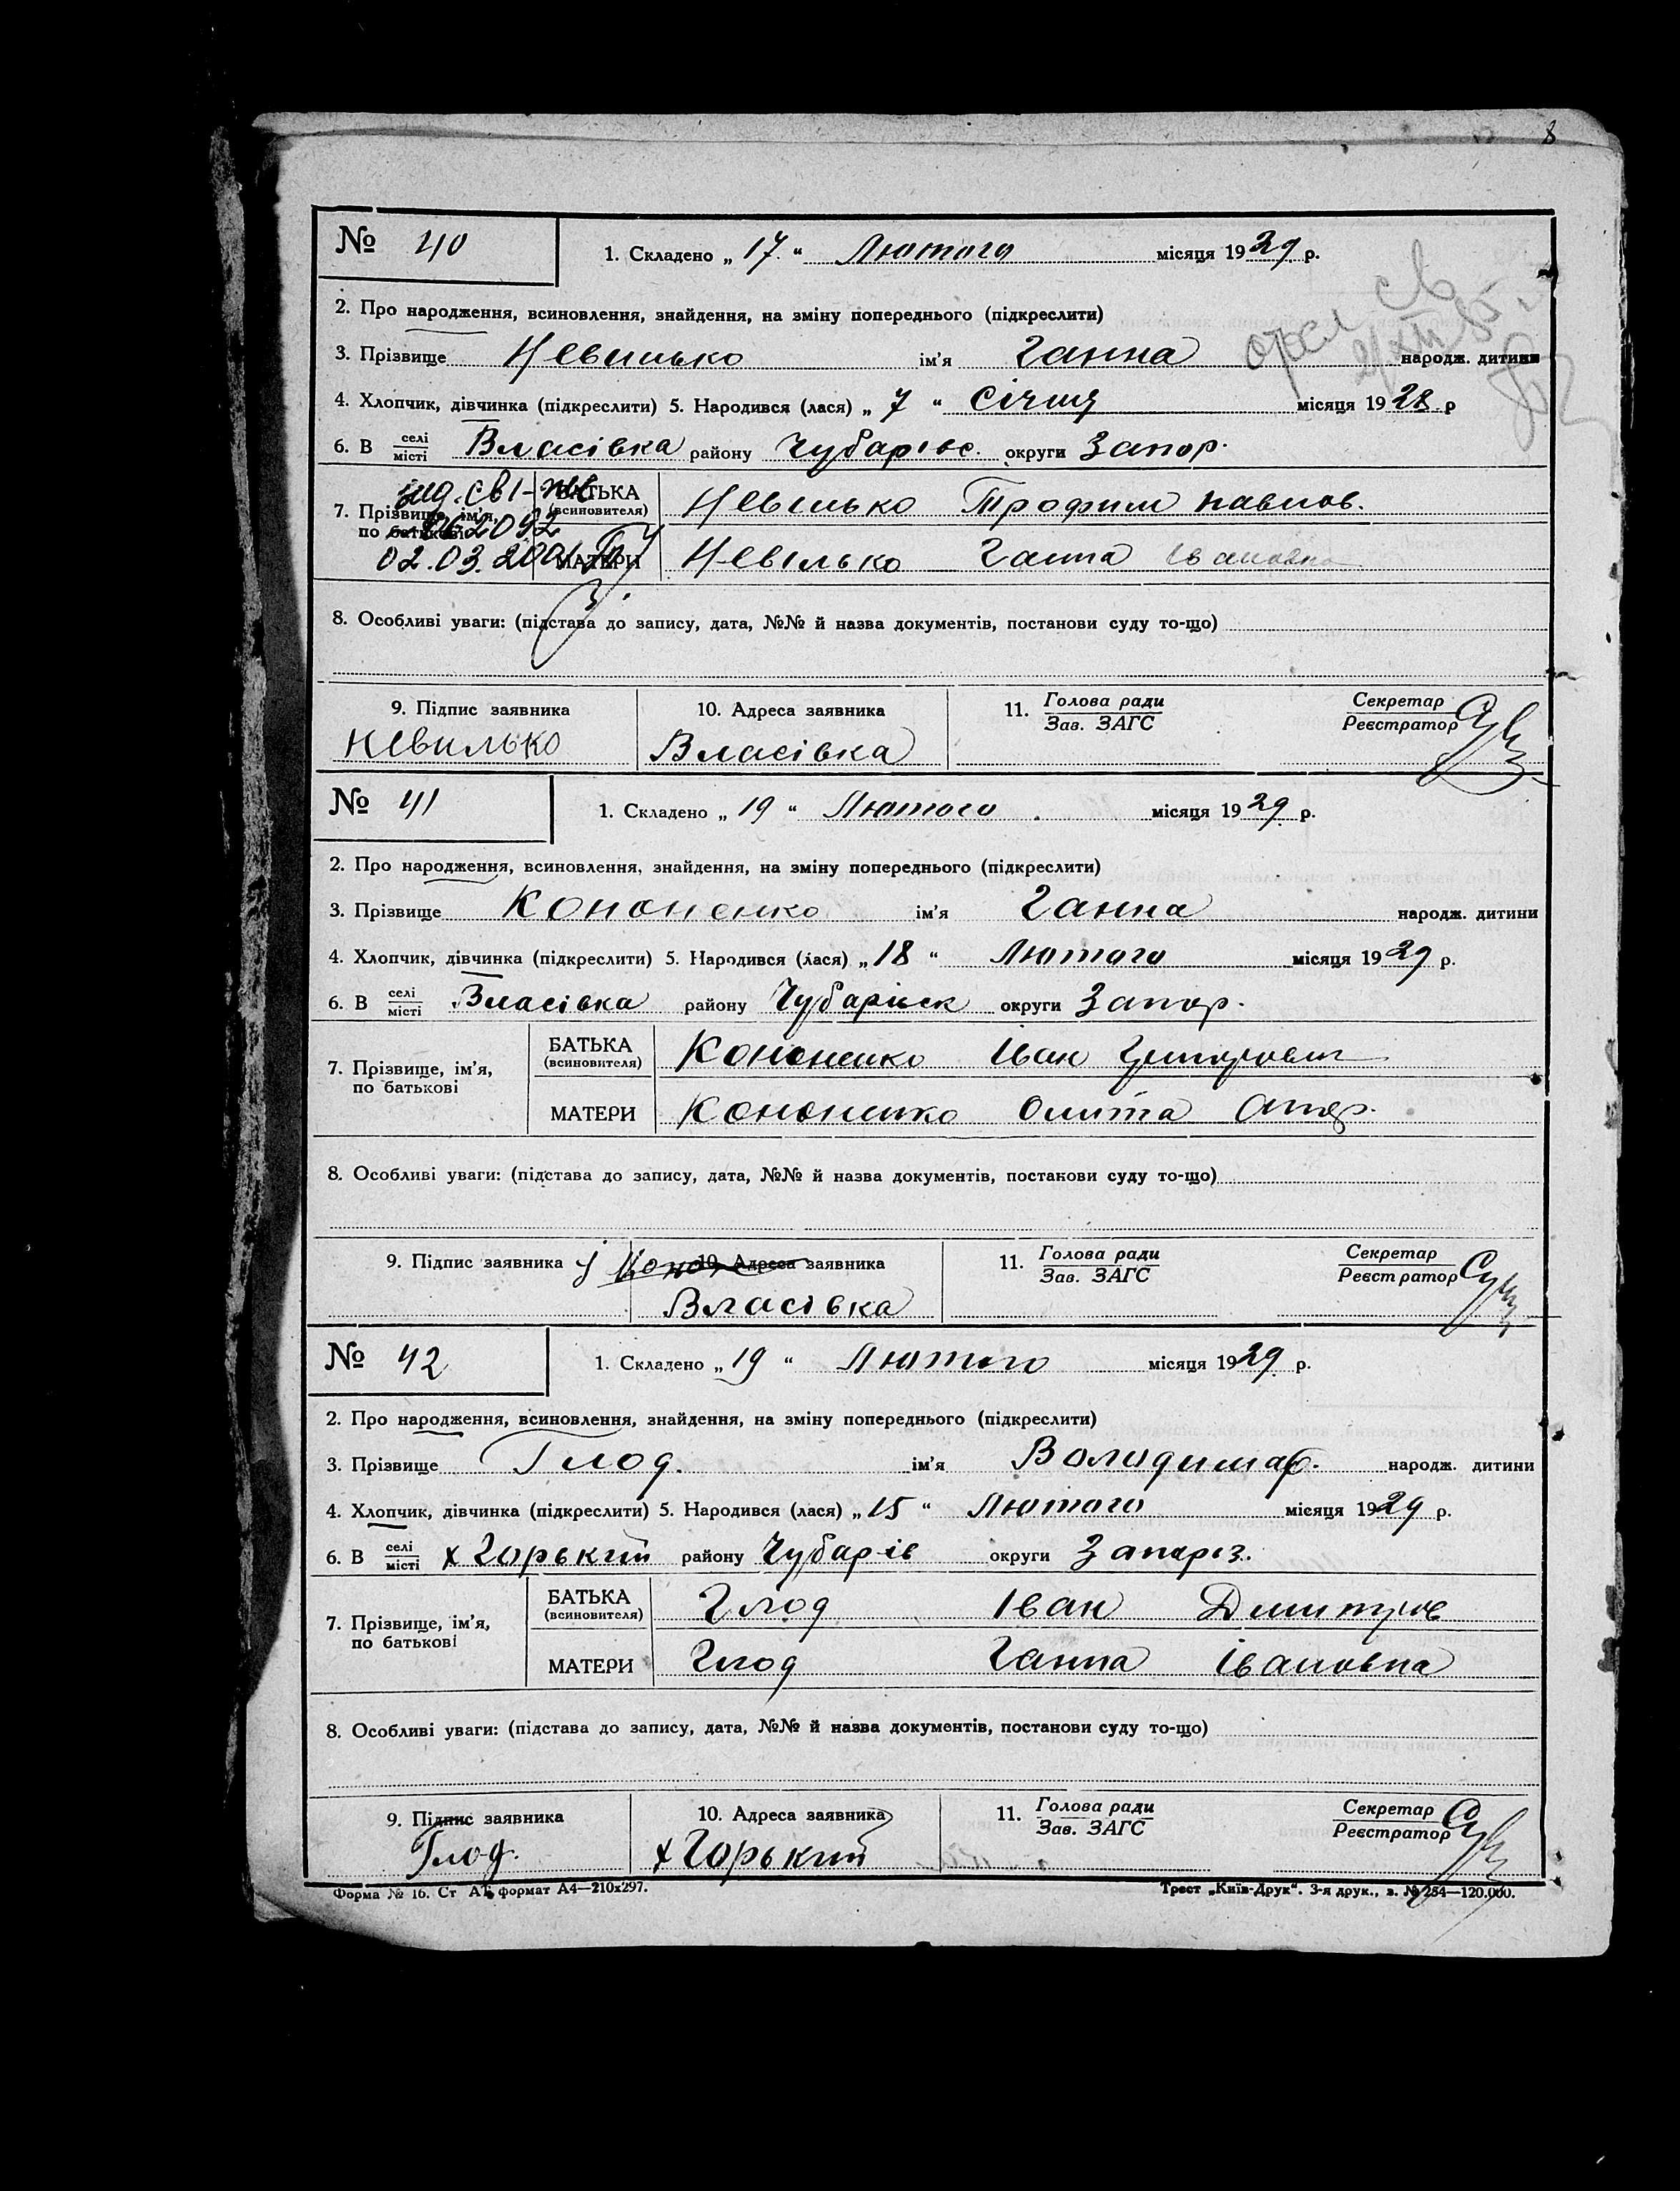 8
№ 40 1. Складено „ 17 “ Лютого місяця 1929 р.
2. Про народження, всиновлення, знайдення, на зміну попереднього (підкреслити)
3. Прізвище Невилько ім'я Ганна народж. дитини
4. Хлопчик, дівчинка (підкреслити) 5. Народився (лася) „ 7 “ Січня місяця 1928 р
6. В селі/місті Власівка району Чубарівс. округи Запор.
7. Прізвище, ім'я, по батькові
02.03.2001
БАТЬКА (всиновителя) Невилько Трофим Павлов.
МАТЕРИ Невілько Ганна Івановна
8. Особливі уваги: (підстава до запису, дата, №№ й назва документів, постанови суду то-що)
9. Підпис заявника 10. Адреса заявника 11. Голова ради/Зав. ЗАГС Секретар/Реєстратор
Невилько Власівка
№ 41 1. Складено „ 19 “ Лютого місяця 1929 р.
2. Про народження, всиновлення, знайдення, на зміну попереднього (підкреслити)
3. Прізвище Кононенко ім'я Ганна народж. дитини
4. Хлопчик, дівчинка (підкреслити) 5. Народився (лася) „ 18 “ Лютого місяця 1929 р.
6. В селі/місті Власівка району Чубарівск округи Запор.
7. Прізвище, ім'я, по батькові
БАТЬКА (всиновителя) Кононенко Іван Григорович
МАТЕРИ Кононенко
8. Особливі уваги: (підстава до запису, дата, №№ й назва документів, постанови суду то-що)
9. Підпис заявника 10. Адреса заявника 11. Голова ради/Зав. ЗАГС Секретар/Реєстратор
Власівка
№ 42 1. Складено „ 19 “ Лютого місяця 1929 р.
2. Про народження, всиновлення, знайдення, на зміну попереднього (підкреслити)
3. Прізвище Глод. ім'я Володимар. народж. дитини
4. Хлопчик, дівчинка (підкреслити) 5. Народився (лася) „ 15 “ Лютого місяця 1929 р.
6. В селі/місті х Горький району Чубарів округи Запоріз.
7. Прізвище, ім'я, по батькові
БАТЬКА (всиновителя) Глод Іван Дмитров
МАТЕРИ Глод Ганна Івановна
8. Особливі уваги: (підстава до запису, дата, №№ й назва документів, постанови суду то-що)
9. Підпис заявника 10. Адреса заявника 11. Голова ради/Зав. ЗАГС Секретар/Реєстратор
Глод. х Горький
Форма № 16. Ст. АТ, формат А4—210х297. Трест „Київ-Друк“. 3-я друк., з. № 254—120.000.